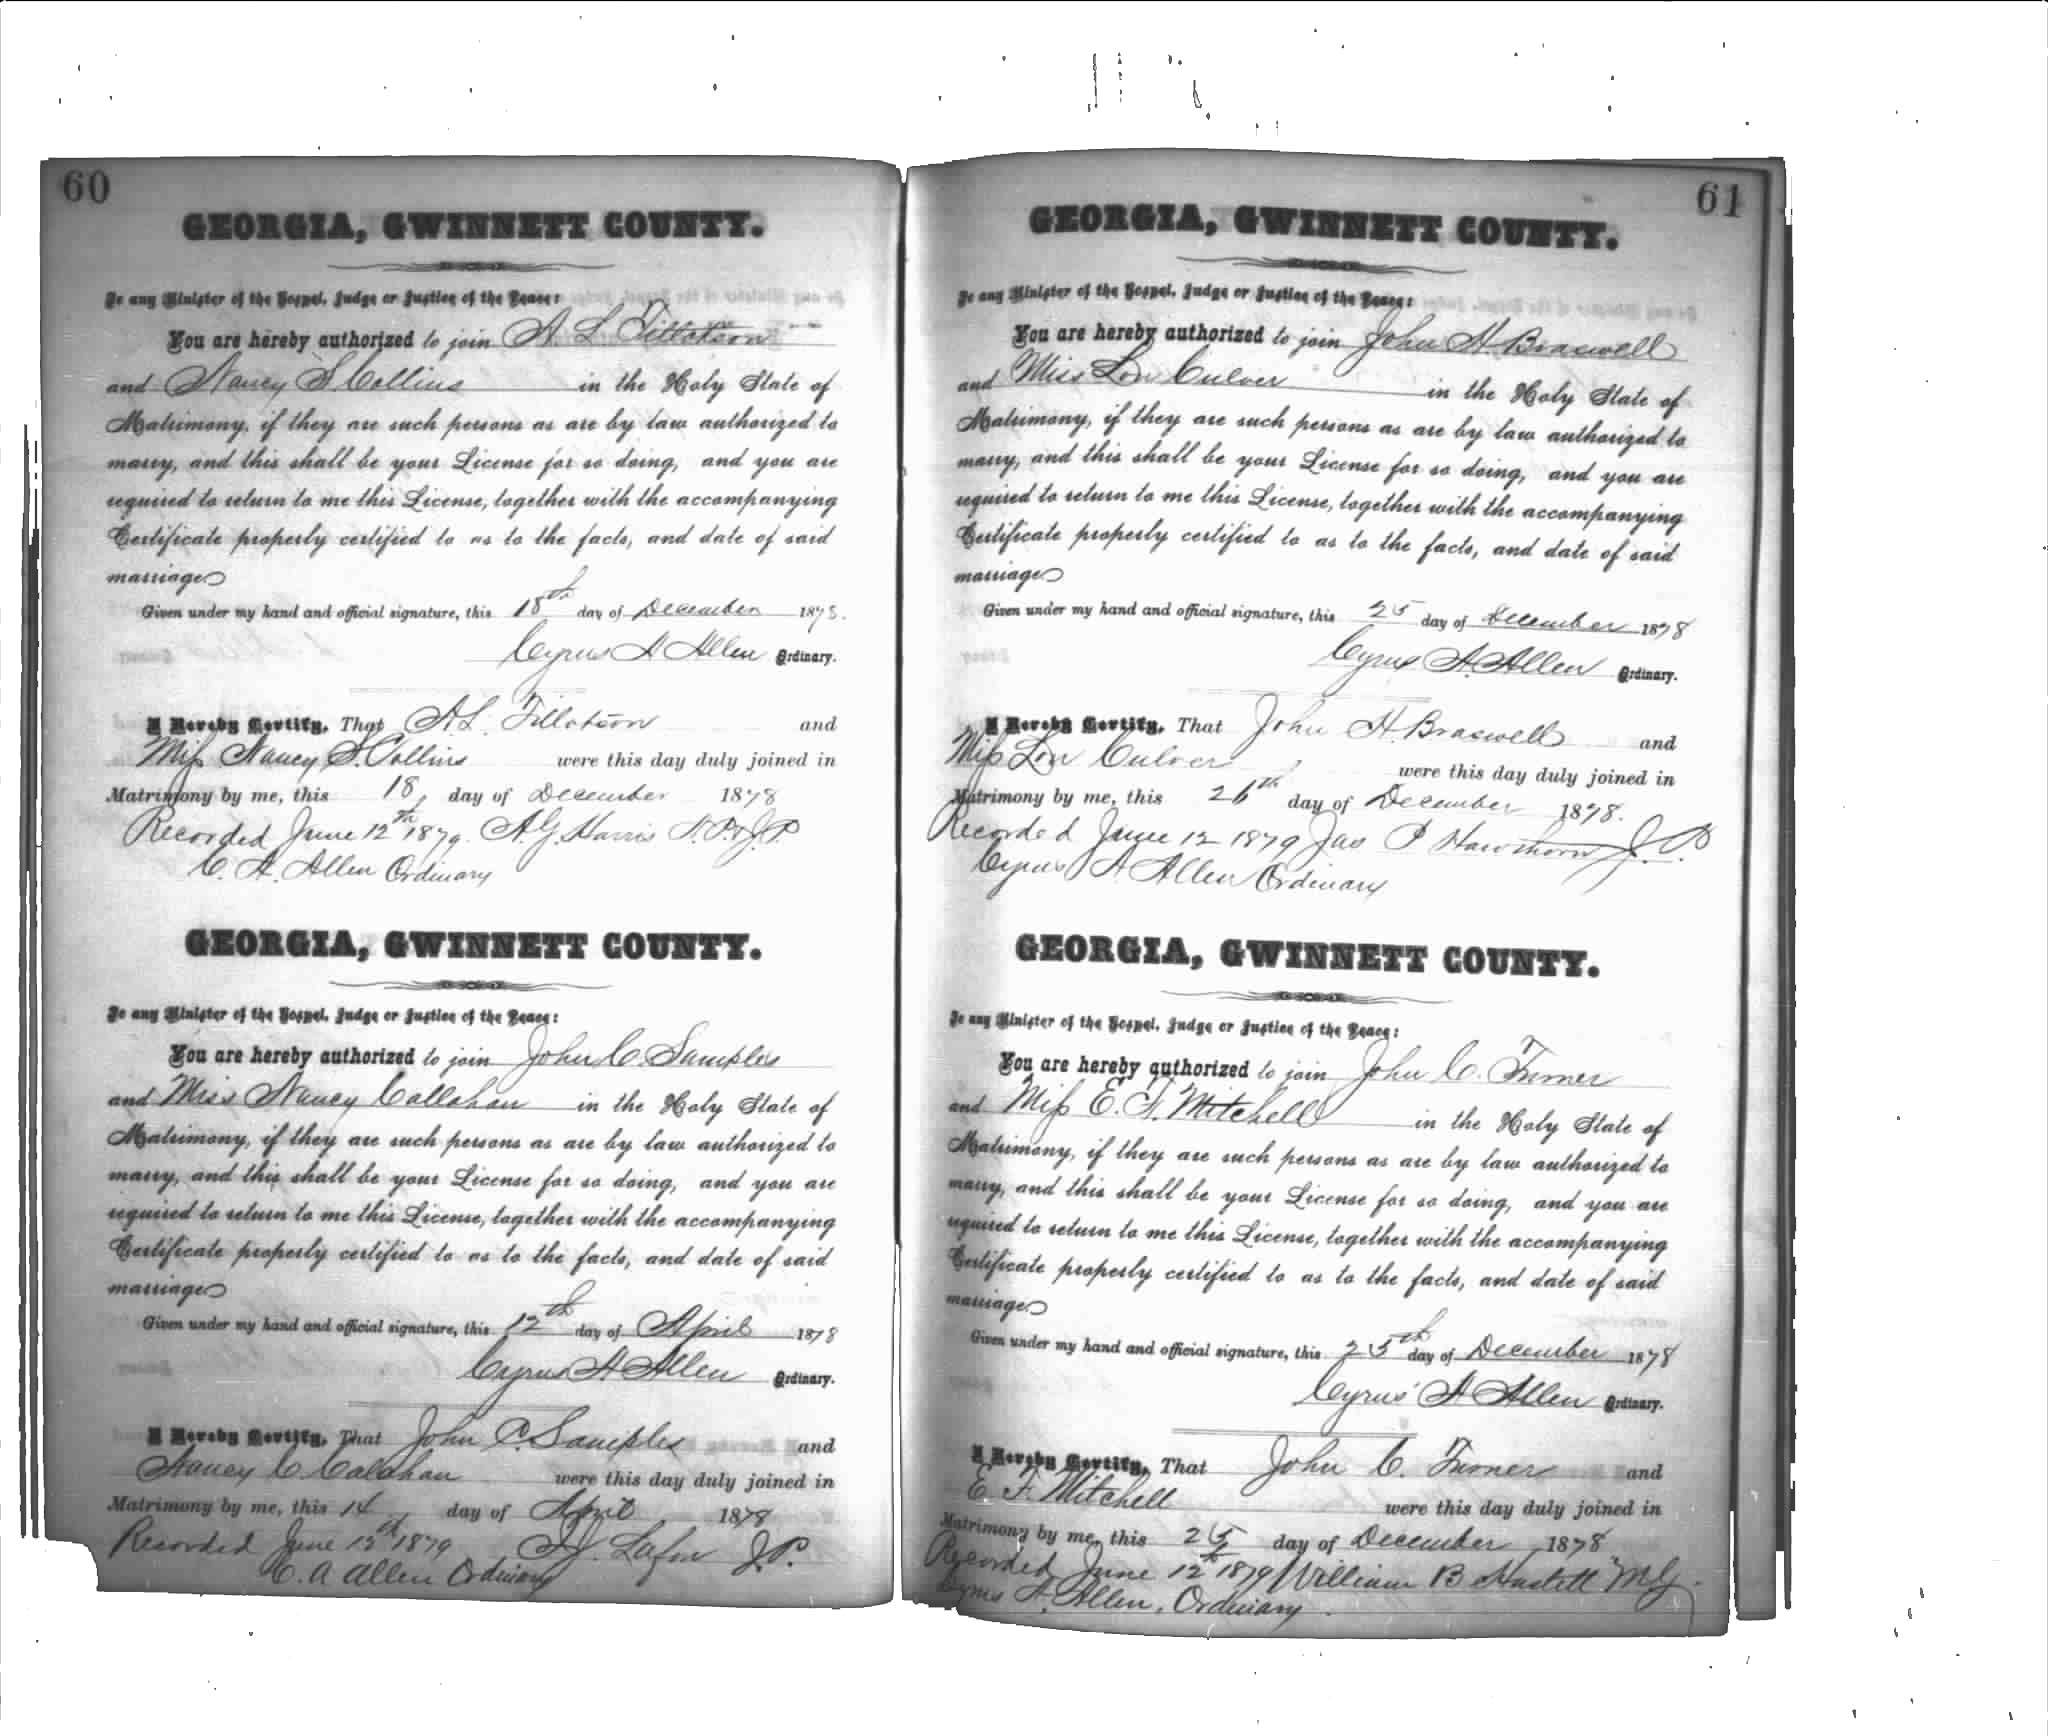 60
GEORGIA, GWINNETT COUNTY.
To any Minister of the Gospel, Judge or Justice of the Peace:
You are hereby authorized to join A. L. Tillotson
and Nancy S. Collins in the Holy State of
Matrimony, if they are such persons as are by law authorized to
marry, and this shall be your License for so doing, and you are
required to return to me this License, together with the accompanying
Certificate properly certified to as to the facts, and date of said
marriage
Given under my hand and official signature, this 18th day of December 1878.
Cyrus A Allen Ordinary.
I Hereby Certify, That A L. Tillotson and
Miss Nancy S. Collins were this day duly joined in
Matrimony by me, this 18, day of December 1878
Recorded June 12th 1879. A. G. Harris N. P. & J. P.
C. A. Allen Ordinary
GEORGIA, GWINNETT COUNTY.
To any Minister of the Gospel, Judge or Justice of the Peace:
You are hereby authorized to join John C. Samples
and Miss Nancy Callahan in the Holy State of
Matrimony, if they are such persons as are by law authorized to
marry, and this shall be your License for so doing, and you are
required to return to me this License, together with the accompanying
Certificate properly certified to as to the facts, and date of said
marriage
Given under my hand and official signature, this 12th day of April 1878
Cyrus A Allen Ordinary.
I Hereby Certify, That John C. Samples and
Nancy C Calahan were this day duly joined in
Matrimony by me, this 14 day of April 1878
Recorded June 12th 1879 J. P.
C. A Allen Ordinary
61
GEORGIA, GWINNETT COUNTY.
To any Minister of the Gospel, Judge or Justice of the Peace:
You are hereby authorized to join John H. Braswell
and Miss Lou Culver in the Holy State of
Matrimony, if they are such persons as are by law authorized to
marry, and this shall be your License for so doing, and you are
required to return to me this License, together with the accompanying
Certificate properly certified to as to the facts, and date of said
marriage
Given under my hand and official signature, this 25 day of December 1878
Cyrus A. Allen Ordinary.
I Hereby Certify, That John H. Braswell and
Miss Lou Culver were this day duly joined in
Matrimony by me, this 26th day of December 1878.
Recorded June 12 1879 Jas P Hawthorn J. P.
Cyrus A Allen Ordinary
GEORGIA, GWINNETT COUNTY.
To any Minister of the Gospel, Judge or Justice of the Peace:
You are hereby authorized to join John C. Turner
and Miss E. F. Mitchell in the Holy State of
Matrimony, if they are such persons as are by law authorized to
marry, and this shall be your License for so doing, and you are
required to return to me this License, together with the accompanying
Certificate properly certified to as to the facts, and date of said
marriage
Given under my hand and official signature, this 25th day of December 1878
Cyrus A Allen Ordinary.
I Hereby Certify, That John C. Turner and
E. F. Mitchell were this day duly joined in
Matrimony by me, this 25 day of December 1878
Recorded June 12th 1879 William B M G.
Cyrus A. Allen, Ordinary.